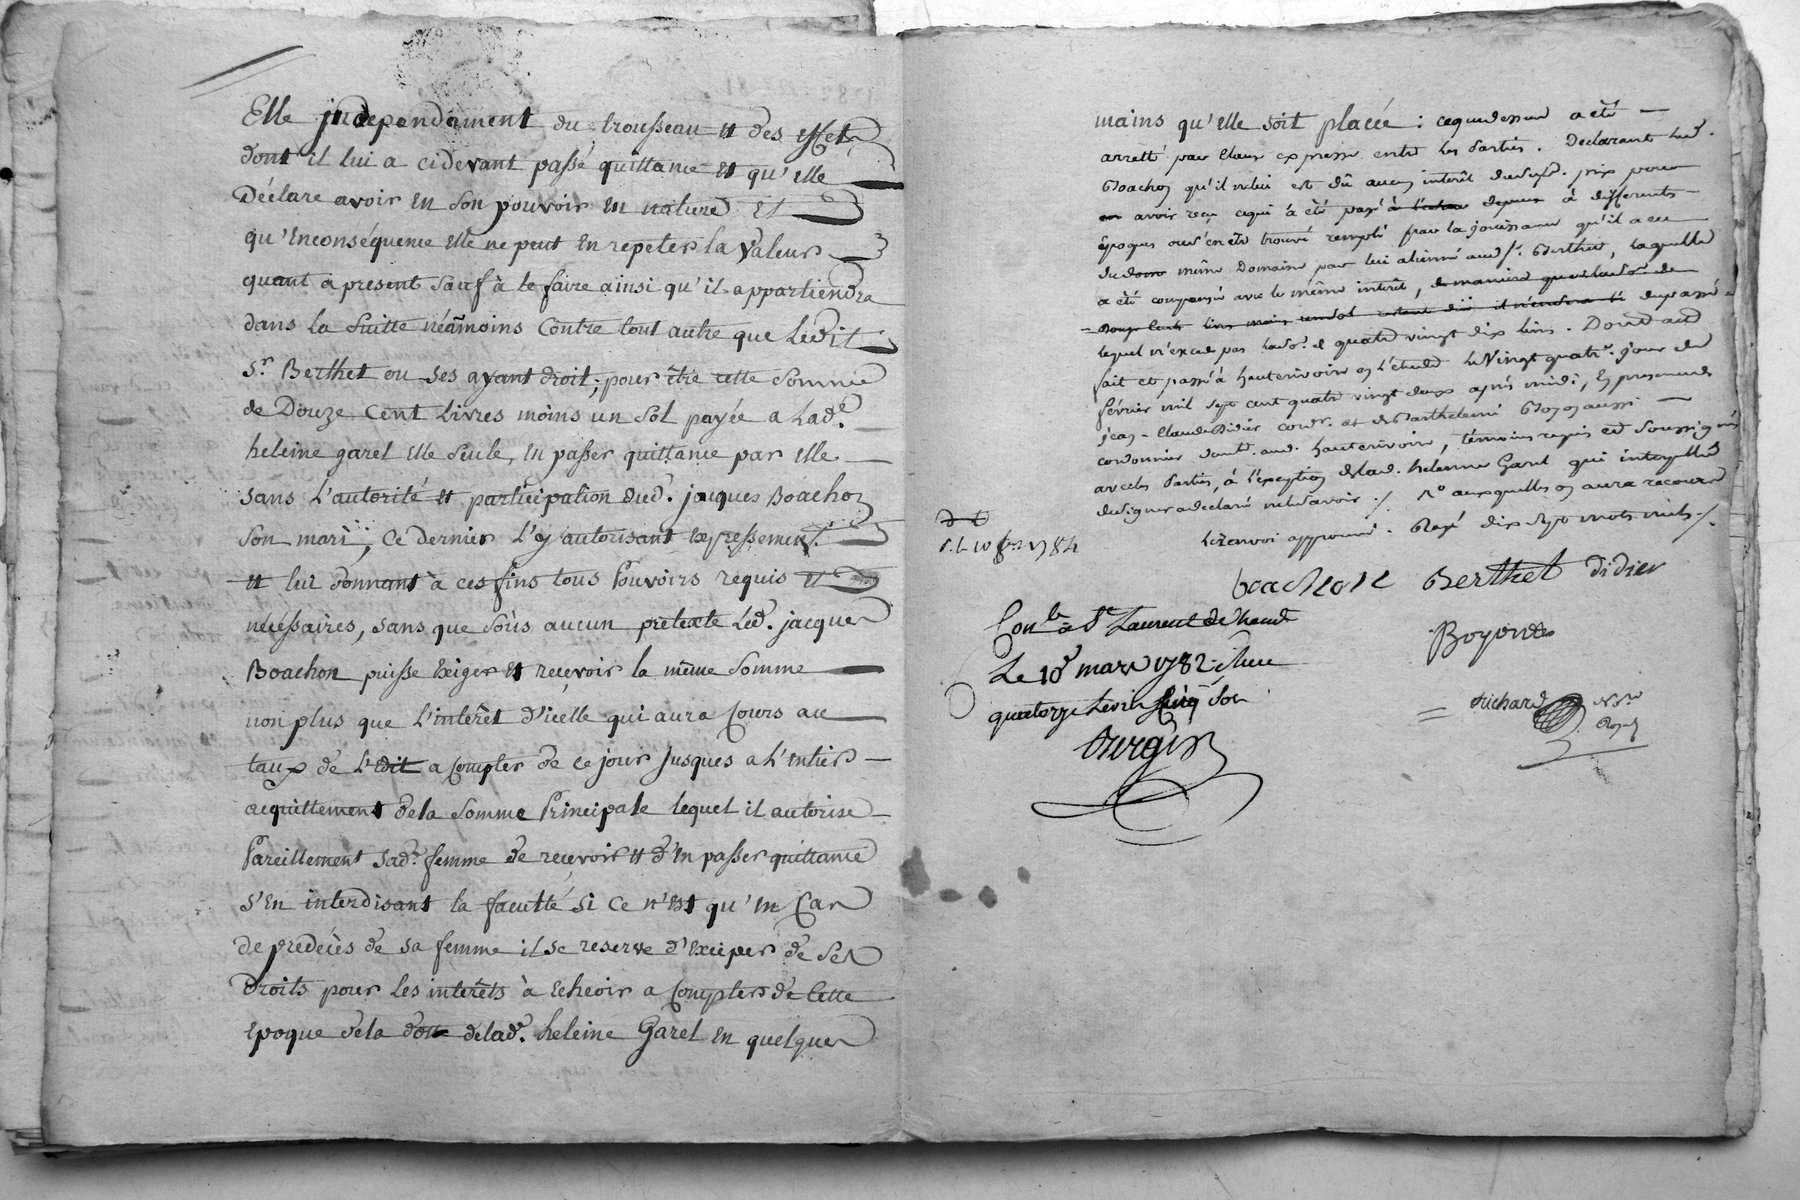 Elle jndependament du trousseau et des effets
dont il lui a cidevant passé quittance et qu'elle
Déclare avoir en son pouvoir en nature et
qu'enconséquence elle ne peut en repeter la valeur
quant a present sauf à le faire ainsi qu'il appartiendra
dans la suitte néamoins contre tout autre que ledit
Sr. Berthet ou ses ayant droit; pour être cette somme
de Douze cent livres moins un sol payée a lade.
heleine garel elle seule, en passer quittance par elle
sans l'autorité et participation dud. jacques Boachon
son mari, ce dernier l'y autorisant expressement
et lui donnant à ces fins tous pouvoirs requis et
nécéssaires, sans que sous aucun pretexte led. jacques
Boachon puisse exiger et reçevoir la même somme
non plus que l'interêt d'icelle qui aura cours au
taux de l'edit a compter de ce jour jusques a l'entier
acquittement dela somme principale lequel il autorise
pareillement sade. femme de recevoir et d'en passer quittance
s'en interdisant la faculté si ce n'est qu'en cas
de predécès de sa femme il se reserve d'exciper de ses
droits pour les interêts à echeoir a compter de cette
epoque dela dot delade. heleine Garel en quelques
mains qu'elle soit placée : cequedessus a été
arretté par clause expresse entre les parties. Declarant led.
Boachon qu'il ne lui est dû aucun interêt dudit prix pour
en avoir reçu ce qui a été payé depuis à differents
époques ou s'en etre trouvé rempli par la jouissance qu'il a eu
du même Domaine par lui aliené aud. sr. Berthet, laquelle
a été compensée avec le même interêt, de maniere que
lequel n'excede pas quatre vingt dix livres. Dont acte
fait et passé à hauterivoire en l'étude le vingt quatre. jour de
février mil sept cent quatre vingt deux après midi, en presence de
jean-Claude Didier cord. et de Barthelemi Boyon aussi
cordonnier demt. aud. hauterivoire, témoins requis et soussignés
avec les parties, à l'exception de lad. helenne Garel qui interpellée
de signer a declaré ne le savoir ./.
le renvoi approuvé. Rayé dix sept mots nuls ./.
boachon Berthet didier
Boyon
Richard Nre. Royal
Conlé à St Laurent de Chamt
Le 10e mars 1782 Reçu
quatorze livres cinq sols